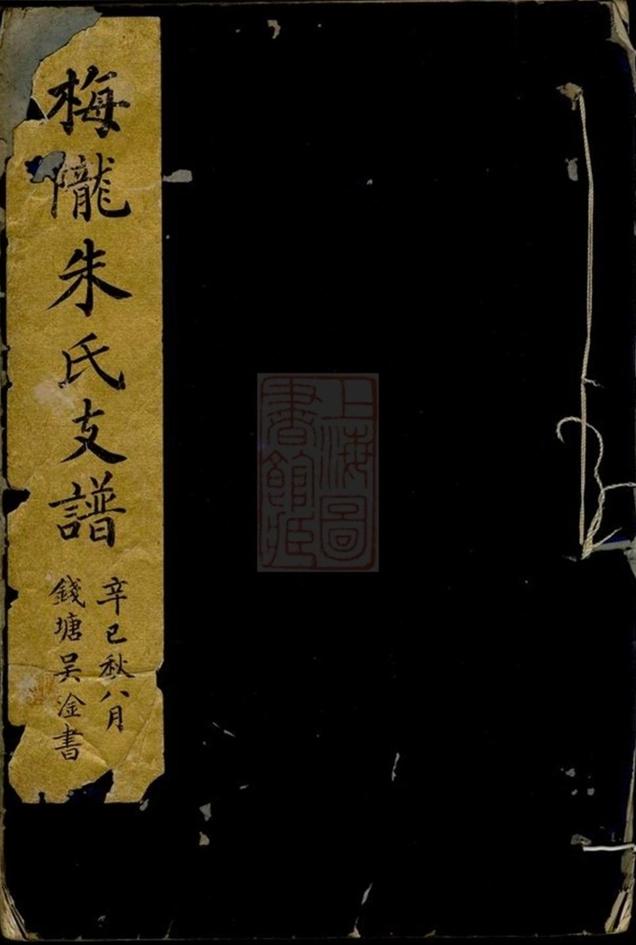 梅隴朱氏支譜
辛巳秋八月
錢塘吴淦書
上海圖
書館藏